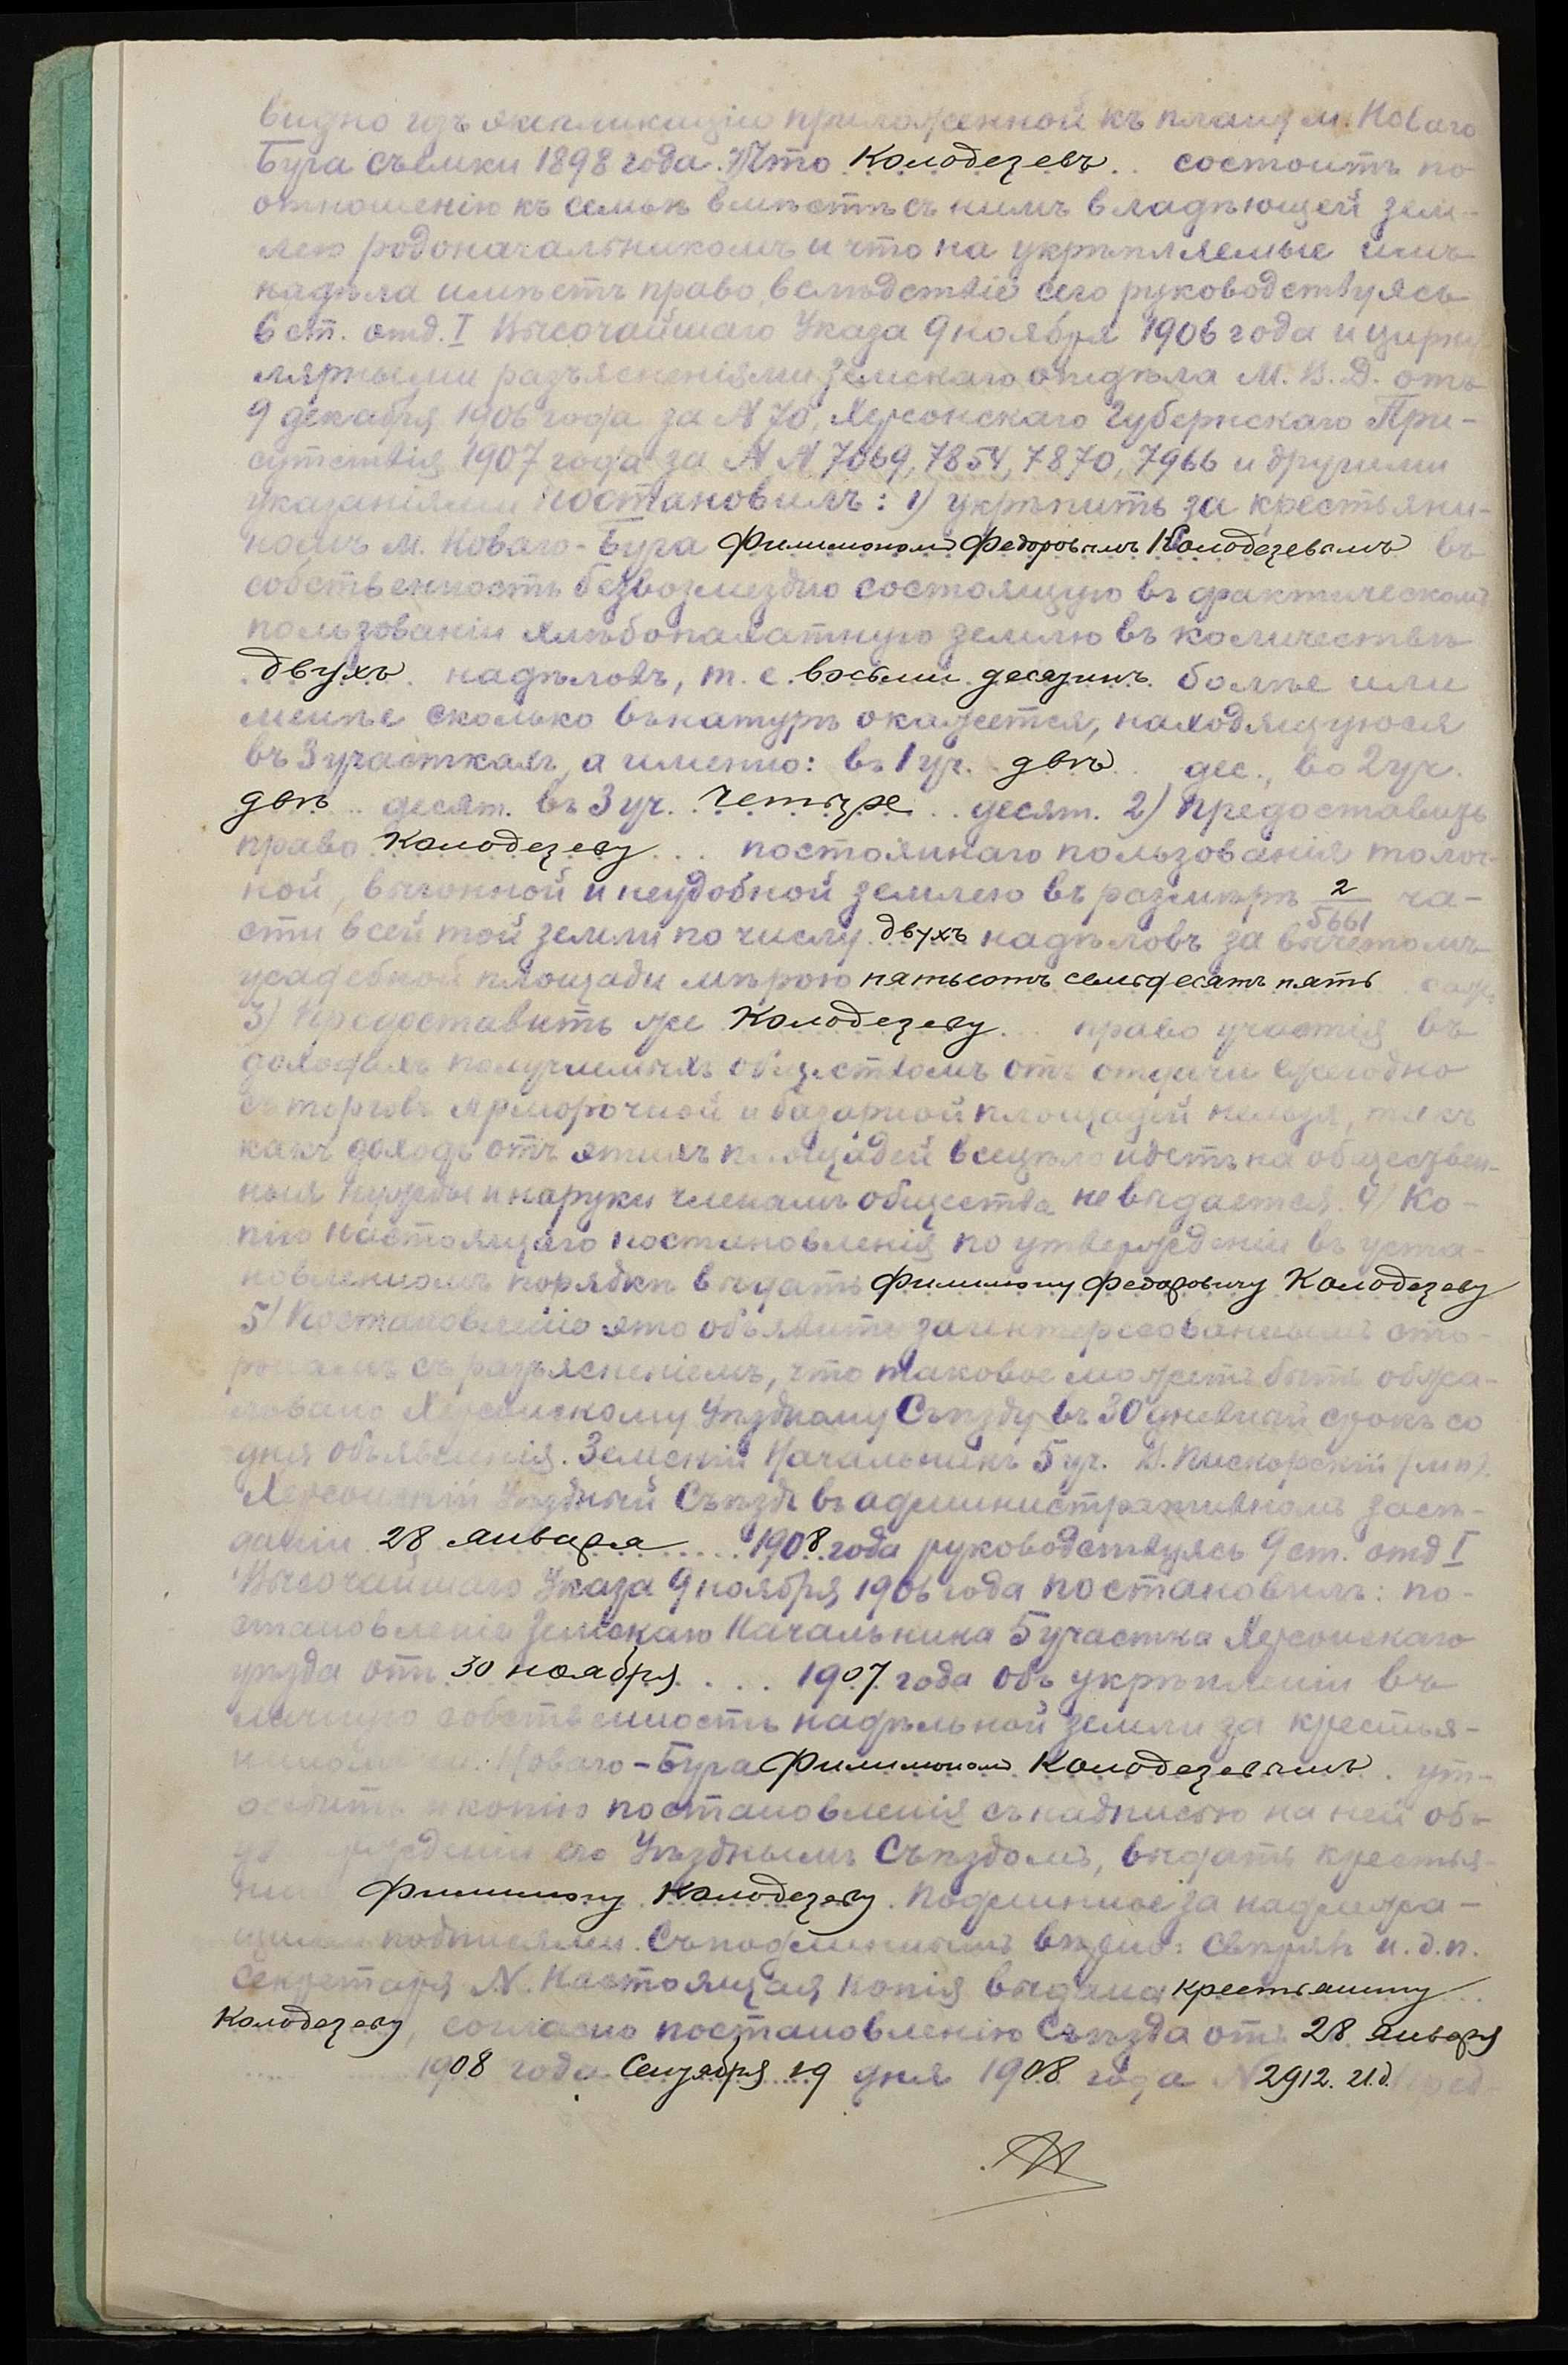 видно изъ экспликаціи приложенной къ плану м. Новаго
Буга съемки 1898 года. Что Колодезевъ состоитъ по
отношенію къ семьѣ вмѣстѣ съ нимъ владѣющей зем-
лею родоначальникомъ и что на укрѣпляемые имъ
надѣла имѣетъ право, вслѣдствіе сего руководствуясь
6 ст. отд. I Высочайшаго Указа 9 ноября 1906 года и цирку
лярными разъясненіями Земскаго отдѣла М. В. Д. отъ
9 декабря 1906 года за N 70, Херсонскаго Губернскаго При-
сутствія 1907 года за N N 7069, 7854, 7870, 7966 и другими
указаніями постановилъ: 1) укрѣпить за крестьяни-
номъ м. Новаго-Буга Филимономъ Федоровымъ Колодезевымъ въ
собственность безвозмездно состоящую въ фактическомъ
пользованіи хлѣбопахатную землю въ количествѣ
двухъ надѣловъ, т. е. восьми десятинъ болѣе или
менѣе сколько въ натурѣ окажется, находящуюся
въ 3 участкахъ, а именно: въ 1 уч. двѣ дес., во 2 уч.
двѣ десят. въ 3 уч. четыре десят. 2) Предоставить
право Колодезеву постояннаго пользованія толоч-
ной, выгонной и неудобной землею въ размѣрѣ 2/5661 ча-
сти всей той земли по числу двухъ надѣловъ за вычетомъ
усадебной площади мѣрою пятьсотъ семьдесятъ пять саж.
3) Предоставить же Колодезеву право участія въ
доходахъ получаемыхъ обществомъ отъ отдачи ежегодно
съ торговъ ярморочной и базарной площадей нельзя, такъ
какъ доходъ отъ этихъ площадей всецѣло идетъ на обществен-
ныя нужды и на руки членамъ общества не выдается. 4) Ко-
пію настоящаго постановленія по утвержденіи въ уста-
новленномъ порядкѣ выдать Филимону Федоровичу Колодезеву
5) Постановленіе это объявить заинтересованнымъ сто-
ронамъ съ разъясненіемъ, что таковое можетъ быть обжа-
ловано Херсонскому Уѣздному Съѣзду въ 30 дневный срокъ со
дня объявленія. Земскій Начальникъ 5 уч. Пискорскій (мп).
Херсонскій Уѣздный Съѣздъ въ административномъ засѣ-
даніи 28 января 1908 года руководствуясь 9 ст. отд I
Высочайшаго Указа 9 ноября 1906 года постановилъ: по-
становленіе Земскаго Начальника 5 участка Херсонскаго
уѣзда отъ 30 ноября 1907 года объ укрѣпленіи въ
личную собственность надѣльной земли за крестья-
ниномъ м. Новаго-Буга Филимономъ Колодезевымъ ут-
вердить и копію постановленія съ надписью на ней объ
утвержденіи его Уѣзднымъ Съѣздомъ, выдать крестья-
ни Филимону Колодезеву. Подлинное за надлежа-
щими подписями. Съ подлиннымъ вѣрно: Свѣрялъ и. д. п.
Секретаря N. Настоящая копія выдана крестьянину
Колодезеву, согласно постановленію Съѣзда отъ 28 января
1908 года Сентября 19 дня 1908 года N 2912. И.д.